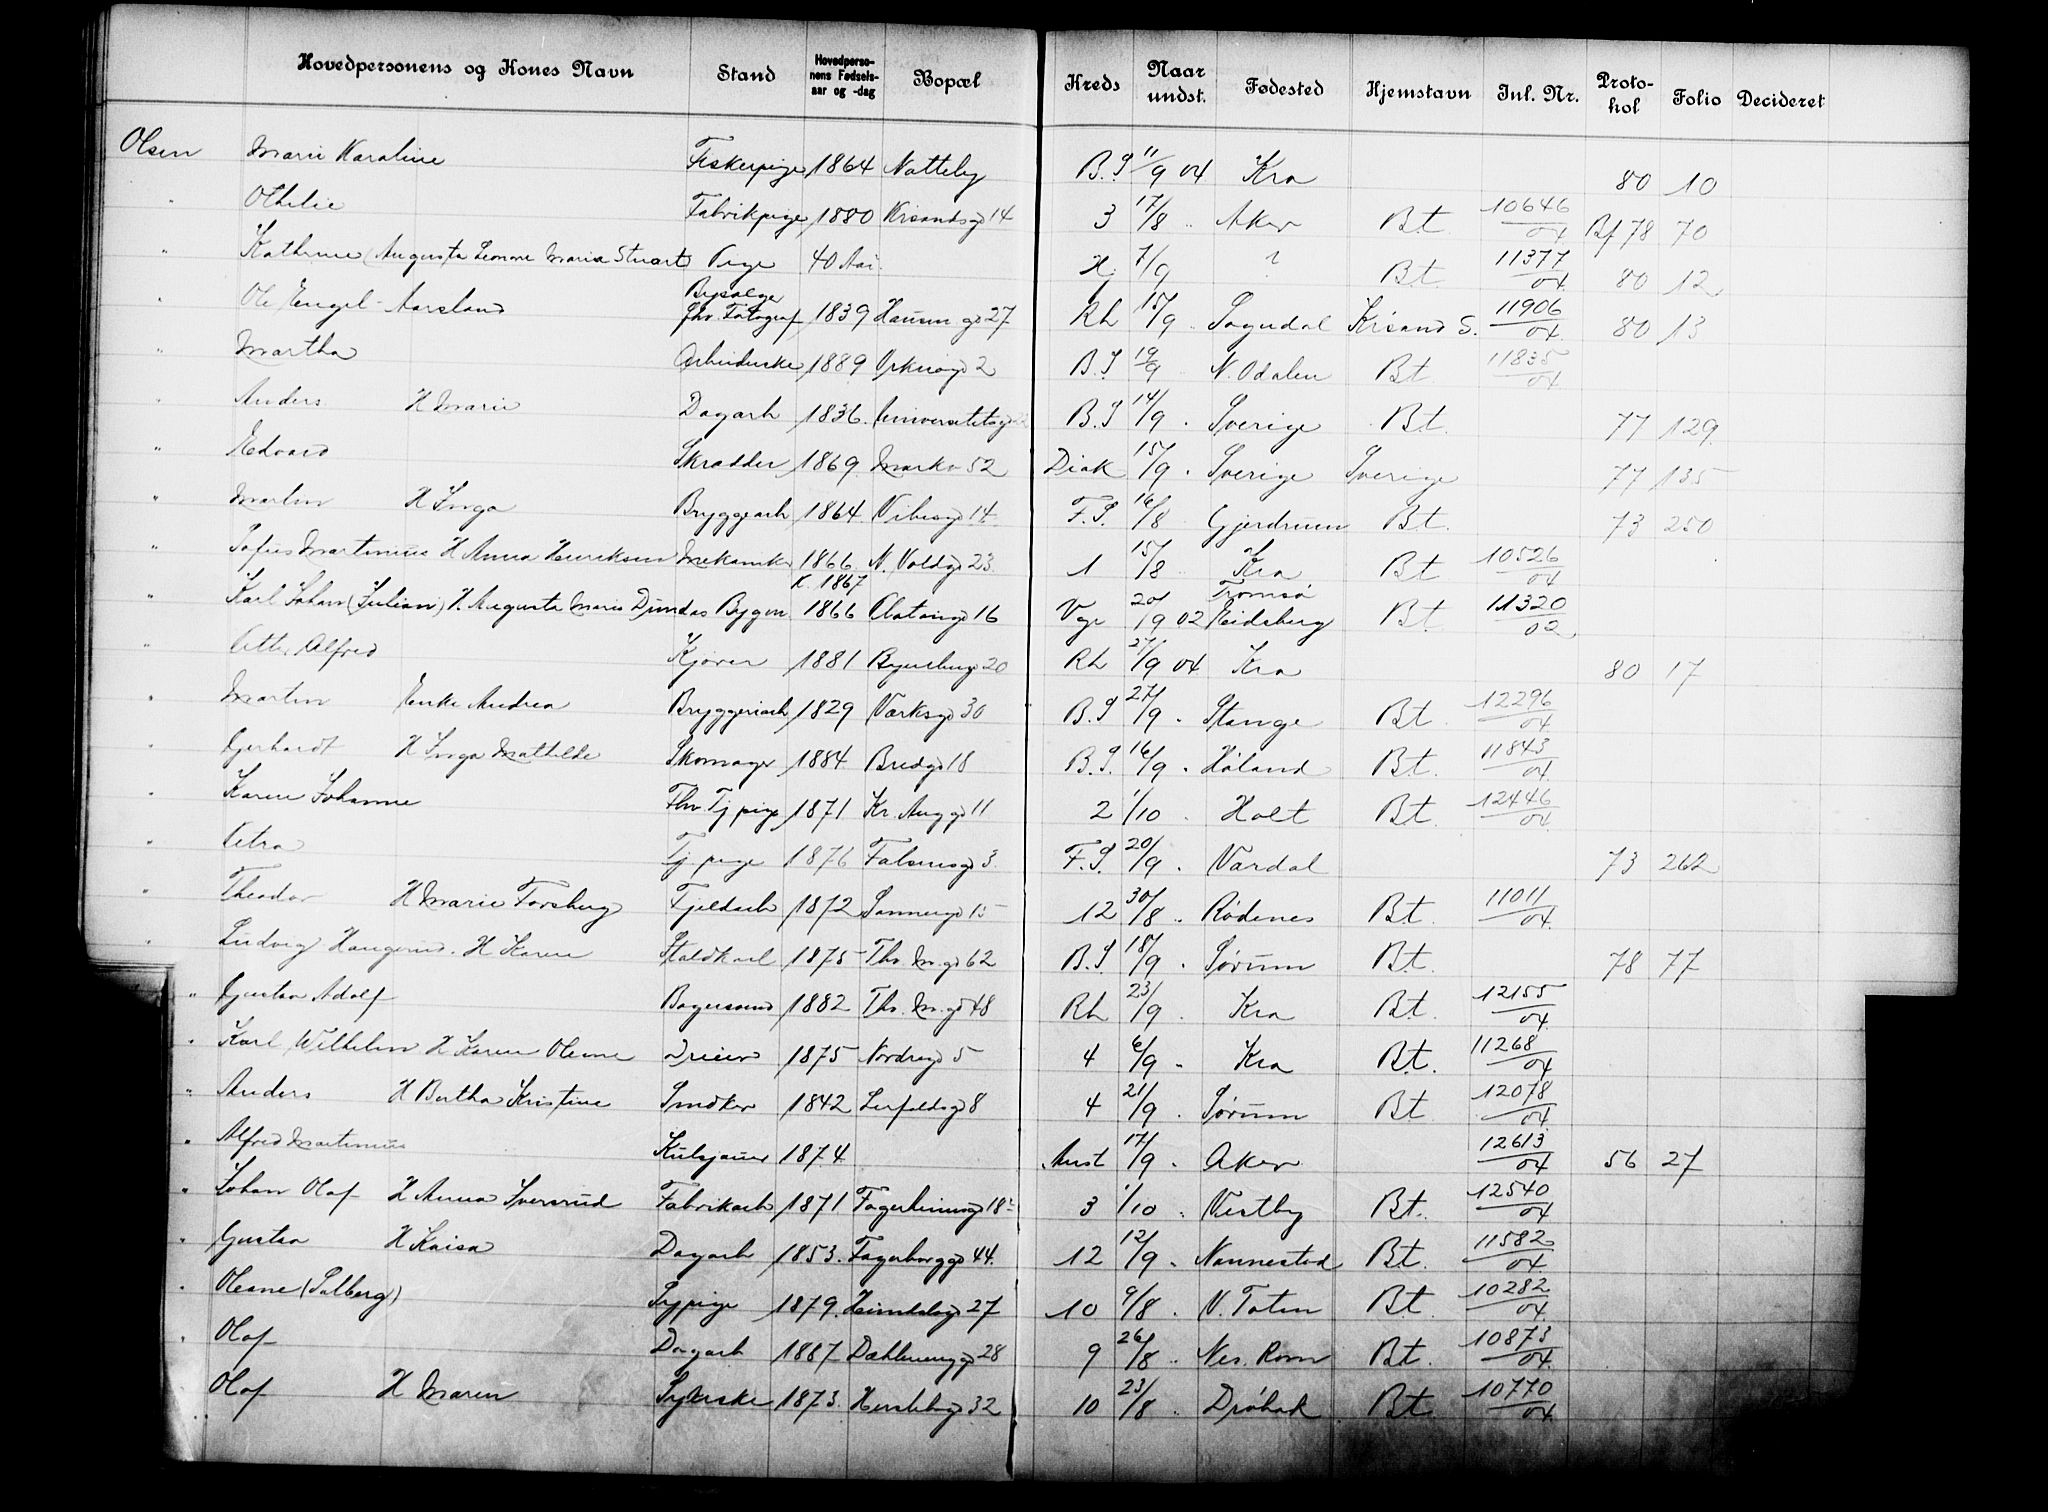 Hovedpersonens og Kones Navn Stand Hovedpersonens Fødselsaar og -dag Bopæl Kreds Naar undst. Fødested Hjemstavn Inl. Nr. Protokol Folio Decideret
Olsen Marie Karoline Fiskerpige 1864 Natteby B.S 11/9 04 Kra 80 10
" Othilie Fabrikpige 1880 Krsandsgd 14 3 17/8 " Aker Bt 10646/04 Bf 78 70
" Kathrine (Augusta Leonore Maria Stuart) Pige 40 Aar Hj 7/9 ? Bt 11377/04 80 12
" Ole Engel Aarsland Bysælger fhv. Fotograf 1839 Hausm gd 27 Rh 15/9 " Sogndal Krsand S. 11906/04 80 13
" Martha Arbeiderske 1889 Orknøgd 2 B.S 19/9 N. Odalen Bt 11835/04
" Anders H Marie Dagarb 1836 Universitetsgd B.S 14/9 " Sverige Bt 77 129
" Edvard Skrædder 1869 Markv 52 Diak 15/9 " Sverige Sverige 77 135
" Martin H Inga Bryggearb 1864 Vibesgd 14 F.S. 16/8 Gjerdrum Bt. 73 250
" Sofus Martinius H Anna Henriksen Mekaniker 1866 N. Voldgd 23 1 15/8 Kra Bt 10526/04
" Karl Johan (Julian) H Augusta Marie Dundas Bygm. K. 1867 1866 Olafsgd 16 Vgr 20/9 02 Tromsø Eidsberg Bt 11320/02
" Otto Alfred Kjører 1881 Bogensbergd 20 Rh 27/9 04 Kra 80 17
" Martin Enke Andrea Bryggeriarb 1829 Værksgd 30 B.S 27/9 " Stange Bt 12296/04
" Gerhardt H Inga Mathilde Skomager 1884 Bredgd 18 B.S. 16/9 " Høland Bt. 11843/04
" Karen Johanne Fhv. Tj pige 1871 Kr. Aug gd 11 2 1/10 " Holt Bt 12446/04
" Petra Tj pige 1876 Falsensgd 3 F.S. 20/9 " Vardal 73 262
" Theodor H Marie Forsberg Fjeldarb 1872 Sannergd 15 12 30/8 " Rødenes Bt. 11011/04
" Ludvig Haugerud. H Karen Staldkarl 1875 Thv. M. gd 62 B.S 18/9 " Sørum Bt. 78 77
" Gustav Adolf Bagersvend 1882 Thv. M. gd 48 Rh 23/9 " Kra Bt. 12155/04
" Karl Wilhelm H Karen Olesne Dreier 1875 Nordregd 5 4 6/9 " Kra Bt. 11268/04
" Anders H Bertha Kristine Snedker 1842 Leirfaldsgd 8 4 21/9 " Sørum Bt 12078/04
" Alfred Martinius Kulsjauer 1874 Anst 17/9 " Aker 12613/04 56 27
" Johan Olaf H Anna Iversrud Fabrikarb 1871 Fagerheimgd 18 3 1/10 " Vestby Bt. 12540/04
" Gustav H Kaisa Dagarb 1853 Fagerborggd 44 12 12/9 " Nannestad Bt. 11582/04
" Olesne (Solberg) Sypige 1879 Heimdalsgd 27 10 9/8 " V. Toten Bt. 10282/04
" Olaf Dagarb 1887 Dæhlenenggd 28 9 26/8 " Nes. Rom Bt. 10873/04
Olaf H Maren Syerske 1873 Herslebsgd 32 10 23/8 " Drøbak Bt 10770/04